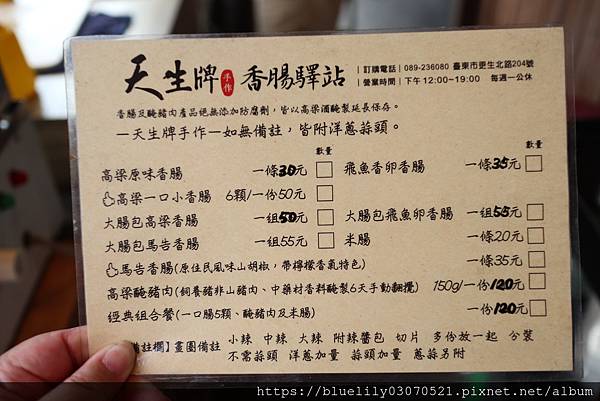 天生牌 手作 香腸驛站
|訂購電話| 089-236080 臺東市更生北路204號
|營業時間| 下午12:00~19:00 每週一公休
香腸及醃豬肉產品絕無添加防腐劑,皆以高梁酒醃製延長保存。
一天生牌手作一如無備註,皆附洋蔥蒜頭。
數量 數量
高梁原味香腸 一條30元 飛魚香卵香腸 一條35元
高梁一口小香腸 6顆/一份50元
大腸包高梁香腸 一組50元 大腸包飛魚卵香腸 一組55元
大腸包馬告香腸 一組55元 米腸 一條20元
馬告香腸(原住民風味山胡椒,帶檸檬香氣特色) 一條35元
高梁醃豬肉(飼養豬非山豬肉、中藥材香料醃製6天手動翻攪) 150g/一份120元
經典組合餐(一口腸5顆、醃豬肉及米腸) 一份120元
備註欄】畫圈備註 小辣 中辣 大辣 附辣醬包 切片 多份放一起 分裝
不需蒜頭 洋蔥加量 蒜頭加量 蔥蒜另附
https://bluelily03070521.pixnet.net/album